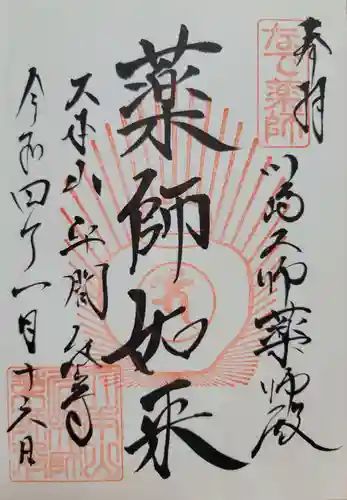 奉拝
なで薬師
川崎大師薬師殿
薬師如来
大本山平間寺
令和四年一月十六日